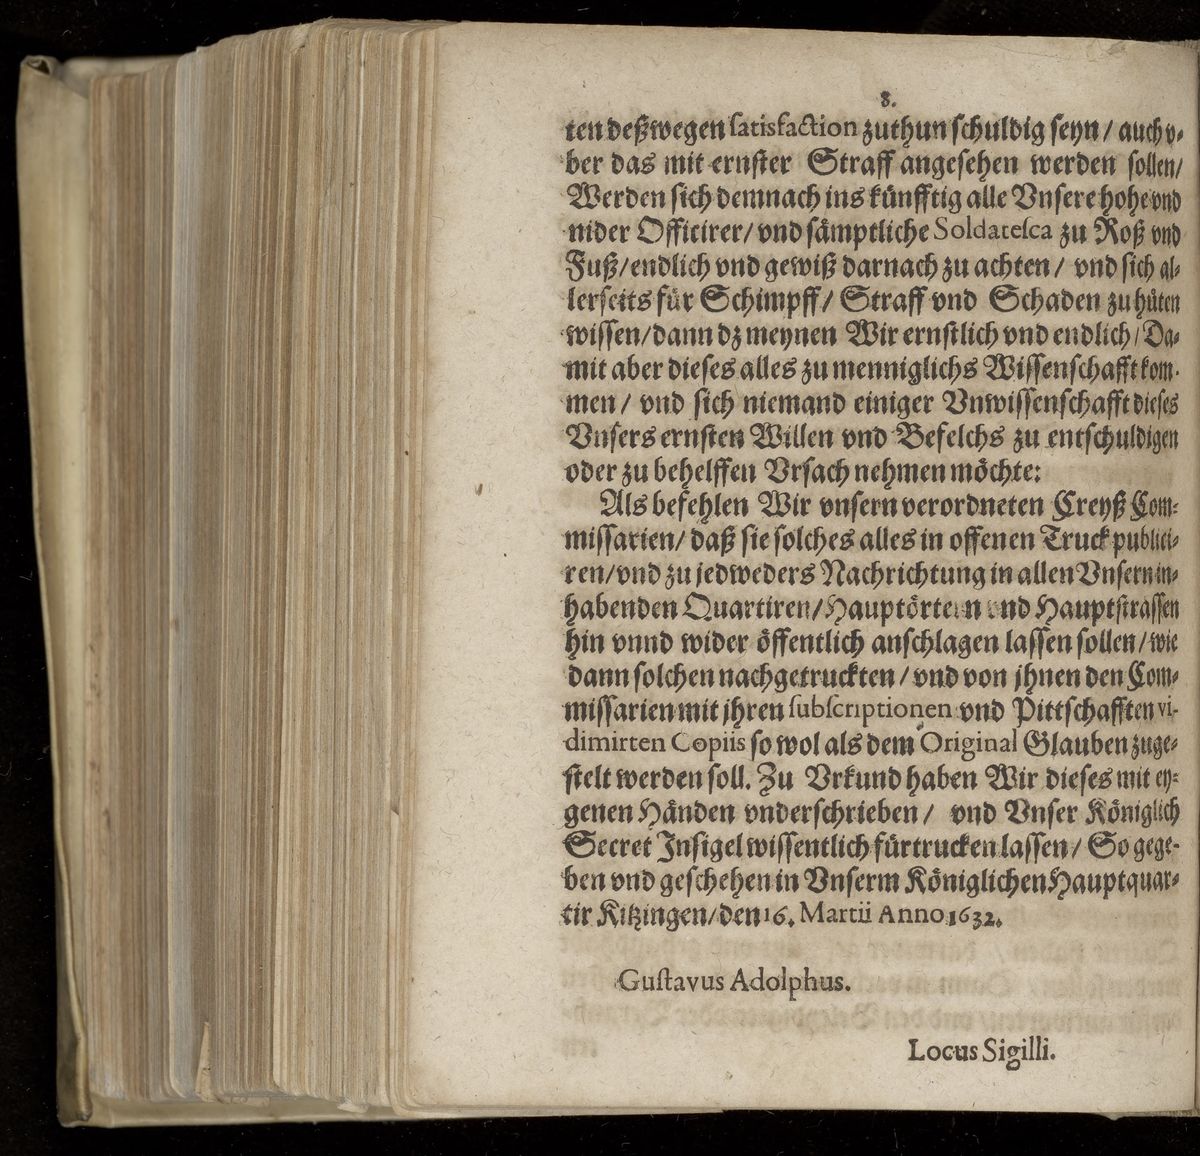 8.
ten deßwegen satisfaction zuthun schuldig seyn / auch v-
ber das mit ernster Straff angesehen werden sollen/
Werden sich demnach ins künfftig alle Vnsere hohe vnd
nider Officirer/ vnd sämptliche Soldatesca zu Roß vnd
Fuß/endlich vnd gewiß darnach zu achten / vnd sich al-
lerseits für Schimpff/ Straff vnd Schaden zu hüten
wissen/dann dz meynen Wir ernstlich vnd endlich/ Da-
mit aber dieses alles zu menniglichs Wissenschafft kom-
men / vnd sich niemand einiger Vnwissenschafft dieses
Vnsers ernsten Willen vnd Befelchs zu entschuldigen
oder zu behelffen Vrsach nehmen möchte:
Als befehlen Wir vnsern verordneten Creyß Com-
missarien/ daß sie solches alles in offenen Truck publici-
ren/vnd zu jedweders Nachrichtung in allen Vnsern in-
habenden Quartiren/Hauptörtern vnd Hauptstrassen
hin vnnd wider öffentlich anschlagen lassen sollen/ wie
dann solchen nachgetruckten / vnd von jhnen den Com-
missarien mit jhren subscriptionen vnd Pittschafften vi-
dimirten Copiis so wol als dem Original Glauben zuge-
stelt werden soll. Zu Vrkund haben Wir dieses mit ey-
genen Händen vnderschrieben / vnd Vnser Königlich
Secret Insigel wissentlich fürtrucken lassen/ So gege-
ben vnd geschehen in Vnserm Königlichen Hauptquar-
tir Kitzingen/den 16. Martii Anno 1632.
Gustavus Adolphus.
Locus Sigilli.